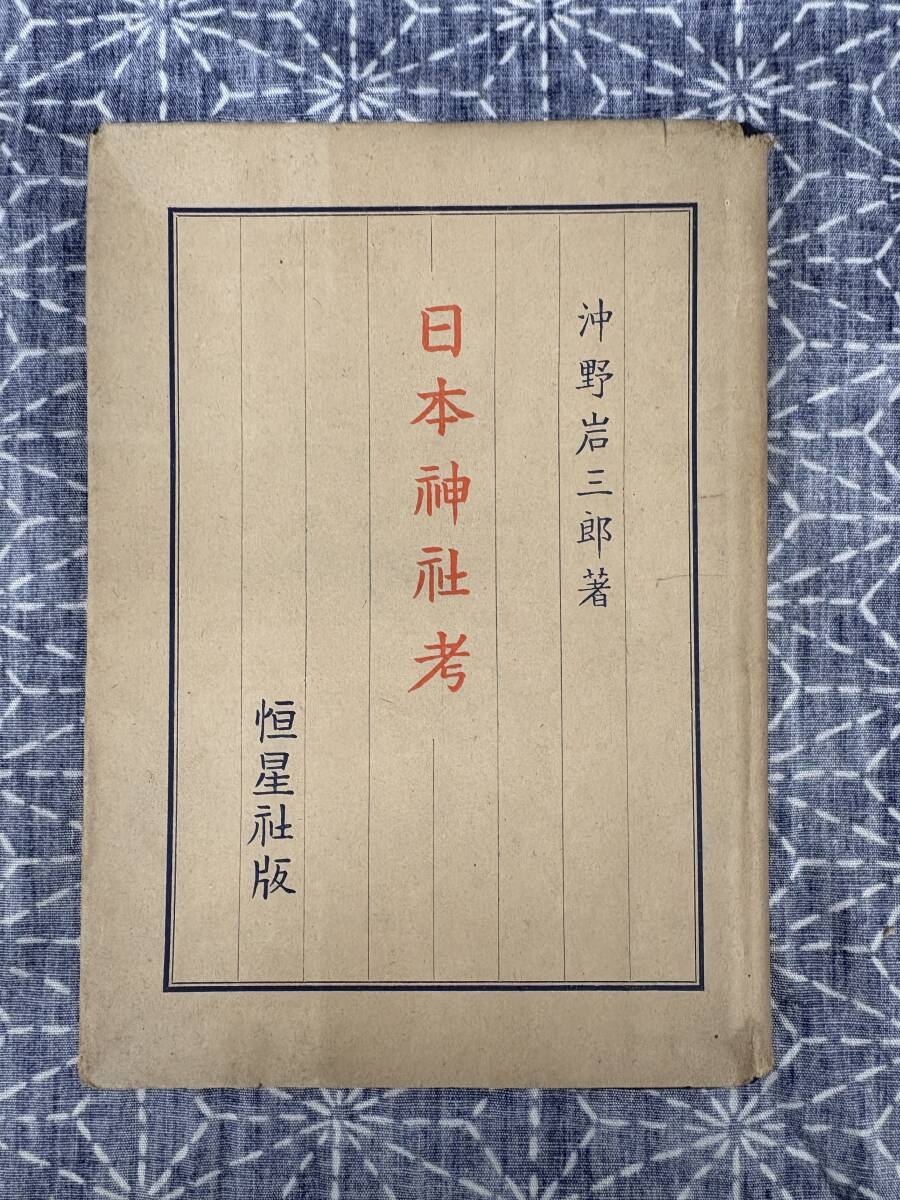 沖野岩三郎著
日本神社考
恒星社版